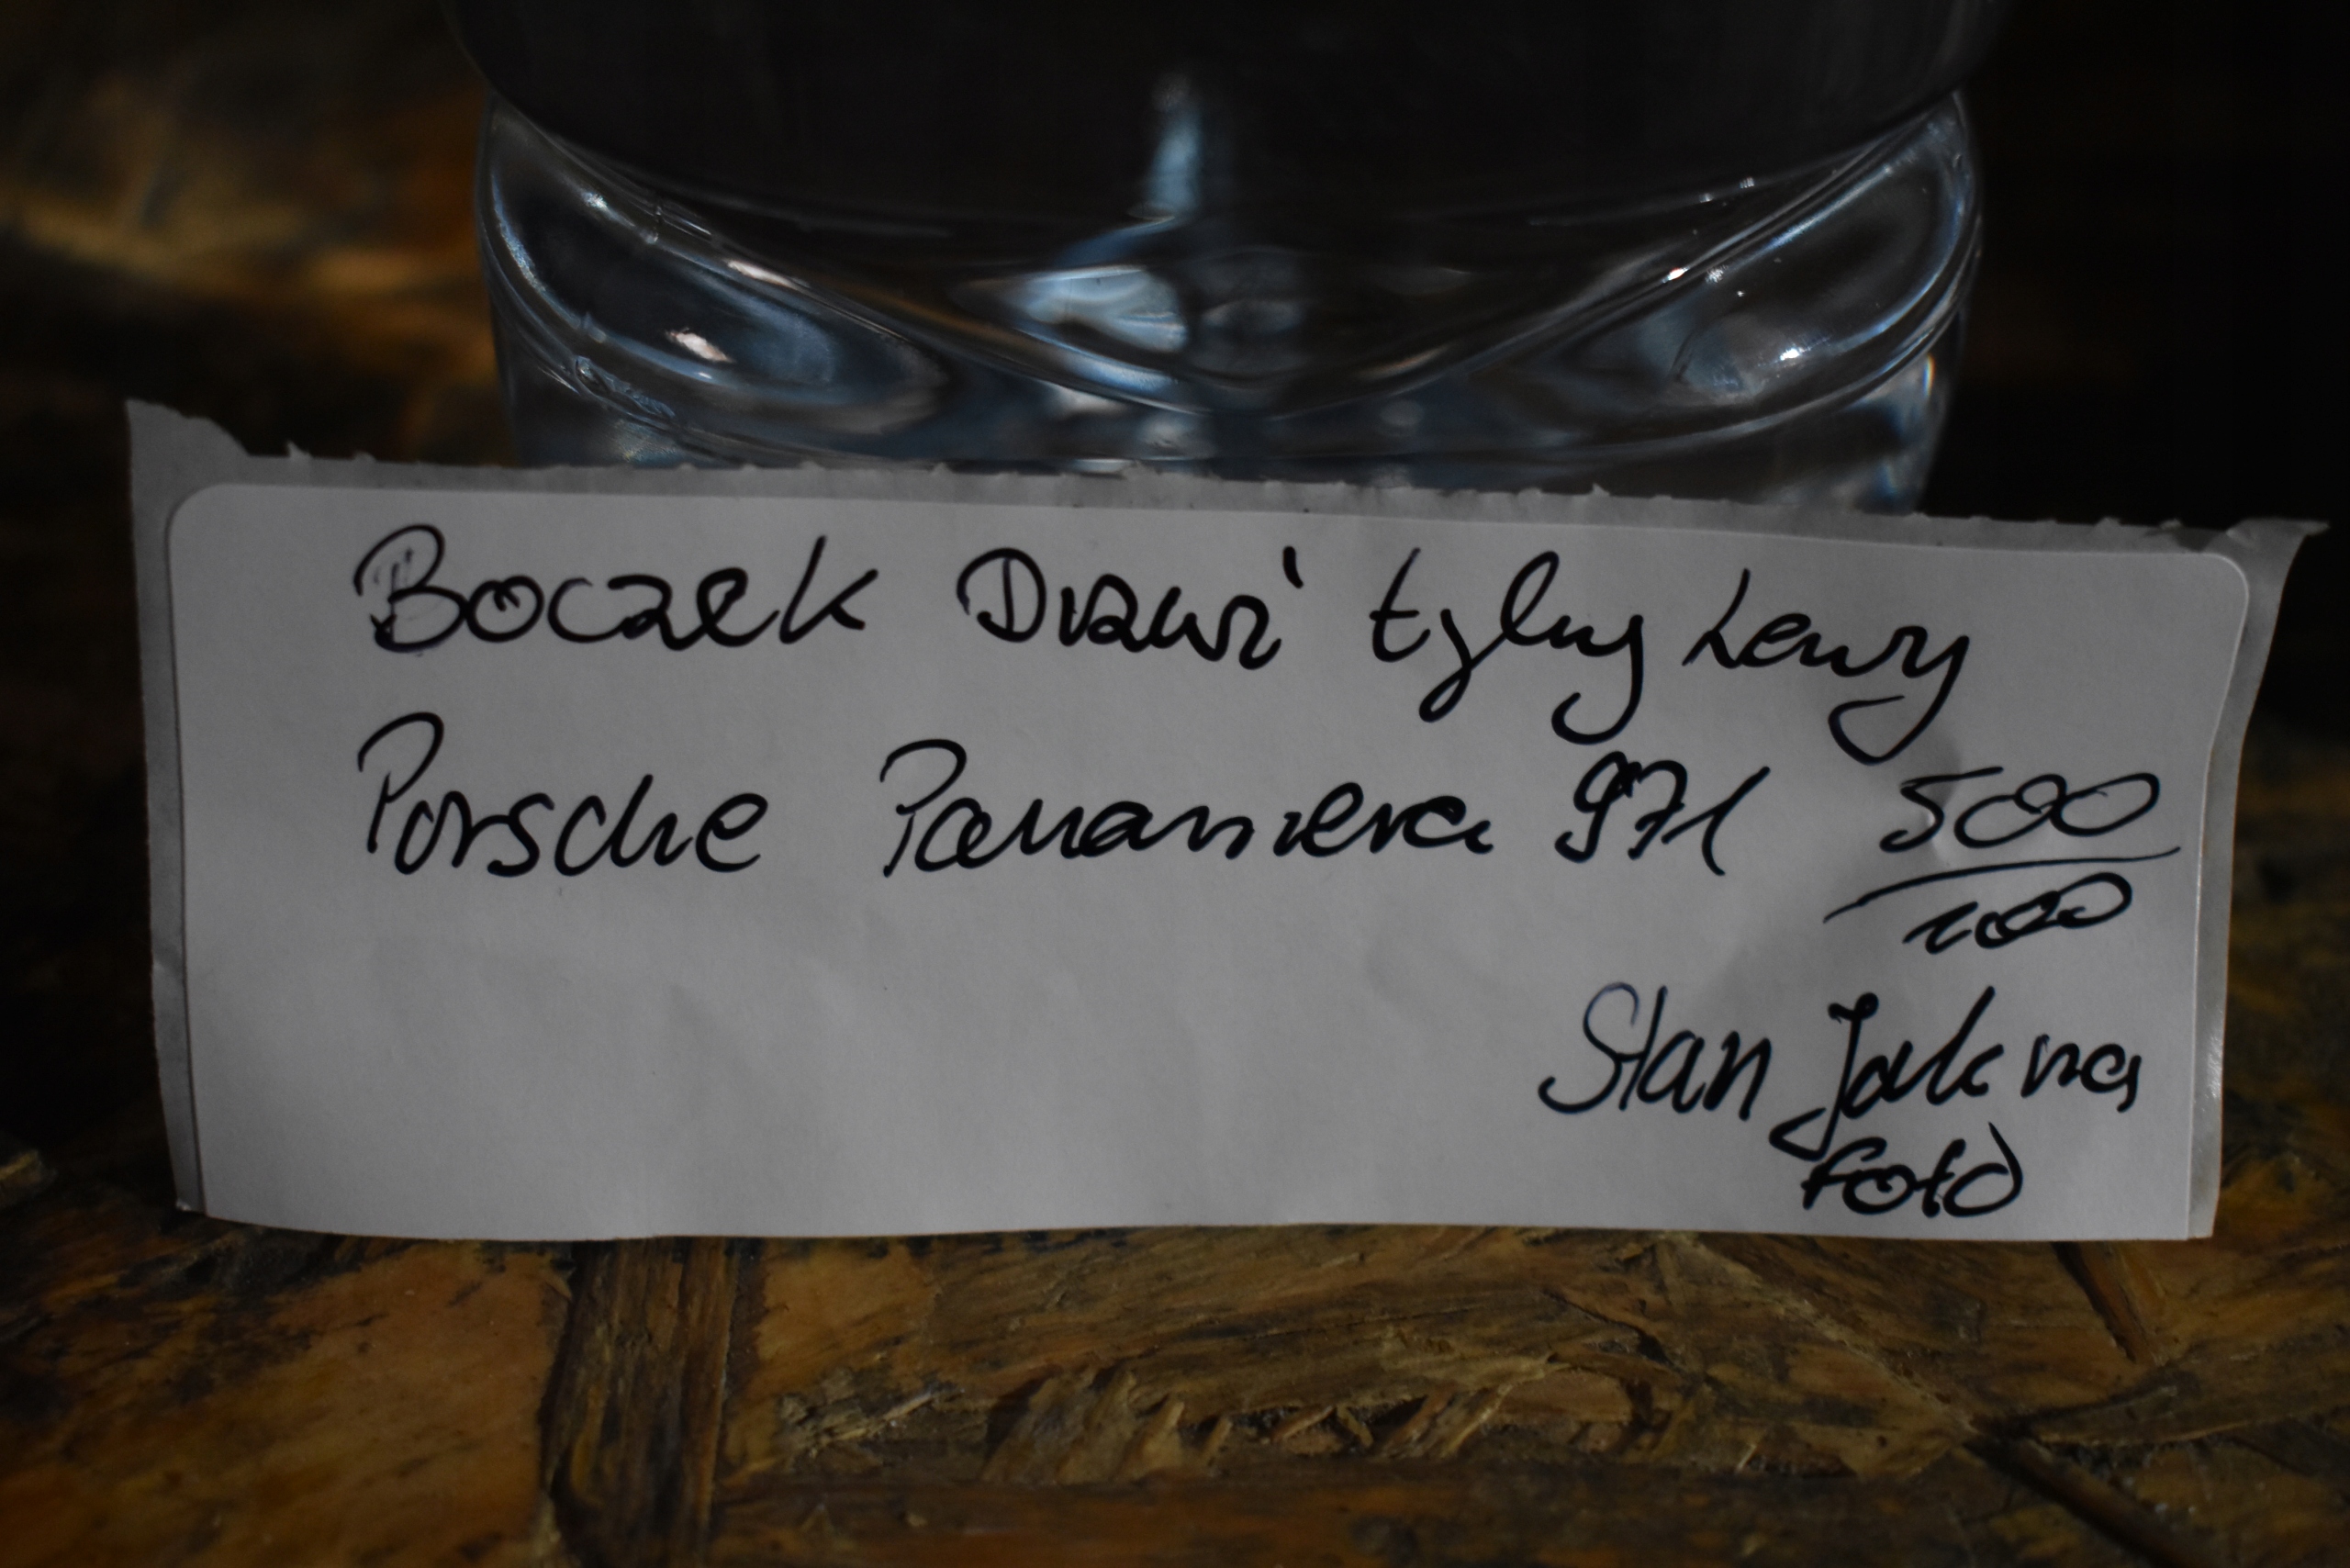 Boczek Drzwi tylny Lewy
Porsche Panamera 971 500
1000
Stan Jak na
foto